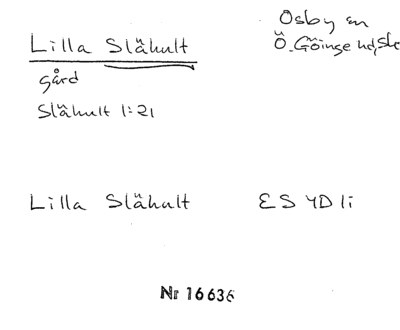 Lilla Slähult
Osby sn
Ö. Göinge hd, Sk
gård
Slähult 1:21
Lilla Slähult
ES 4D 1i
Nr 16636